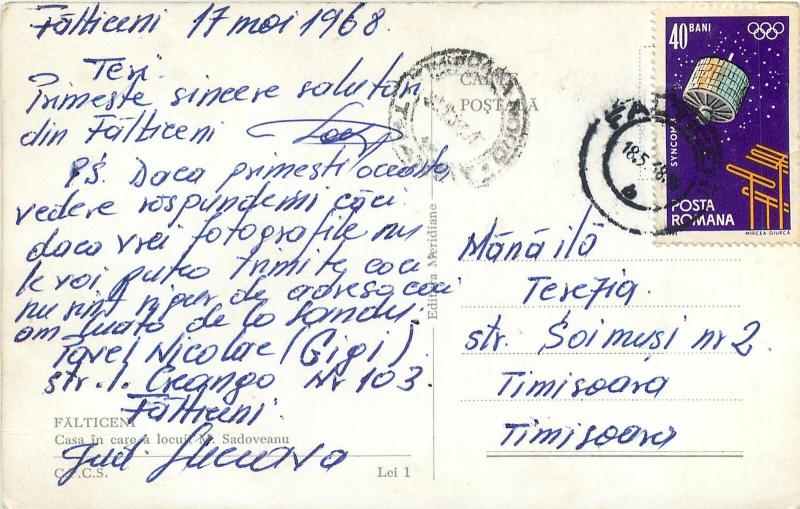 Fălticeni 17 mai 1968
Teri
Primește sincere salutări
din Fălticeni
P.S. Daca primesti aceasta
vedere răspundemi căci
daca vrei fotografiile nu
le voi putea trimite caci
nu sint sigur de adresa caci
am luato de la Sandu.
Pavel Nicolae (Gigi)
str. I. Creanga Nr 103
Fălticeni
Jud. Suceava
FĂLTICENI
Casa în care a locuit M. Sadoveanu
C.P.C.S.
Lei 1
Editura Meridiane
CARTE
POȘTALĂ
40 BANI
SYNCOM
POSTA
ROMANA
MIRCEA GIURCĂ
18.5.68
Mănăilă
Terezia
str. Șoimuși nr 2
Timisoara
Timisoara